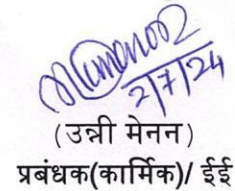 2/7/24
(उन्नी मेनन)
प्रबंधक(कार्मिक)/ ईई